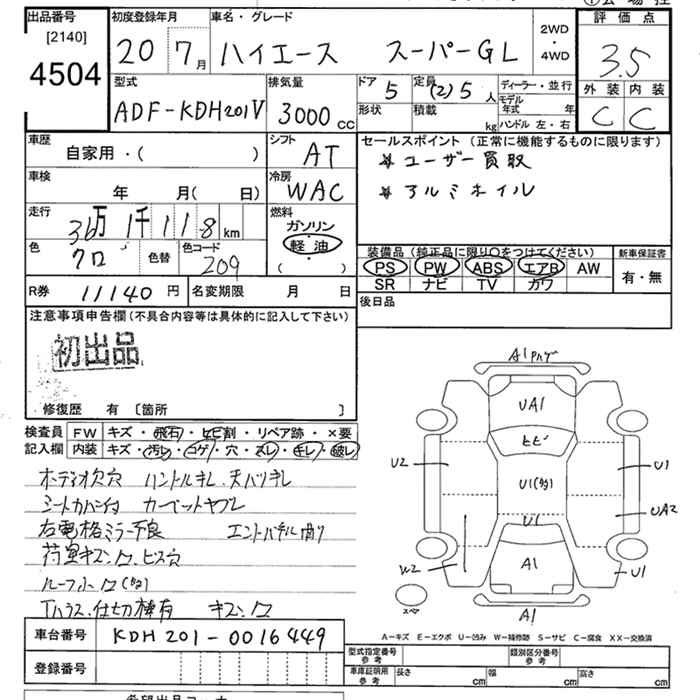 出品番号
[2140]
4504
初度登録年月
20 7月
車名・グレード
ハイエース スーパーGL
2WD
・
4WD
評価点
3.5
外装 内装
C C
型式
ADF-KDH201V
排気量
3000 cc
ドア
5
定員
(2) 5 人
形状
積載
kg
ディーラー・並行
モデル年式 年
ハンドル 左・右
車歴
自家用・( )
シフト
AT
車検
年 月( 日)
冷房
WAC
走行
36万1千118 km
燃料
ガソリン
軽油
( ・ )
色
クロ
色替
色コード
209
R券 11140 円
名変期限 月 日
セールスポイント (正常に機能するものに限ります)
* ユーザー買取
* アルミホイル
装備品 (純正品に限り○をつけてください)
PS PW ABS エアB AW
SR ナビ TV カワ
新車保証書
有・無
後日品
注意事項申告欄 (不具合内容等は具体的に記入して下さい)
初出品
修復歴 有 〔箇所 〕
検査員記入欄
FW キズ・飛石・ヒビ割・リペア跡・×要
内装 キズ・汚レ・コゲ・穴・スレ・キレ・破レ
オーディオ欠穴 ハンドルキレ
シートカバー付 カーペットヤブレ
右電格ミラー不良
荷室キズ
仕切棒有
車台番号 KDH201-0016449
登録番号
A1
UA1
ヒビ
U2
U1
U1
UA2
U1
A1
W2
U1
スペア
A1
A−キズ E−エクボ U−凹み W−補修跡 S−サビ C−腐食 XX−交換済
型式指定番号
参考
類別区分番号
参考
車庫証明用
参考
長さ cm
幅 cm
高さ cm